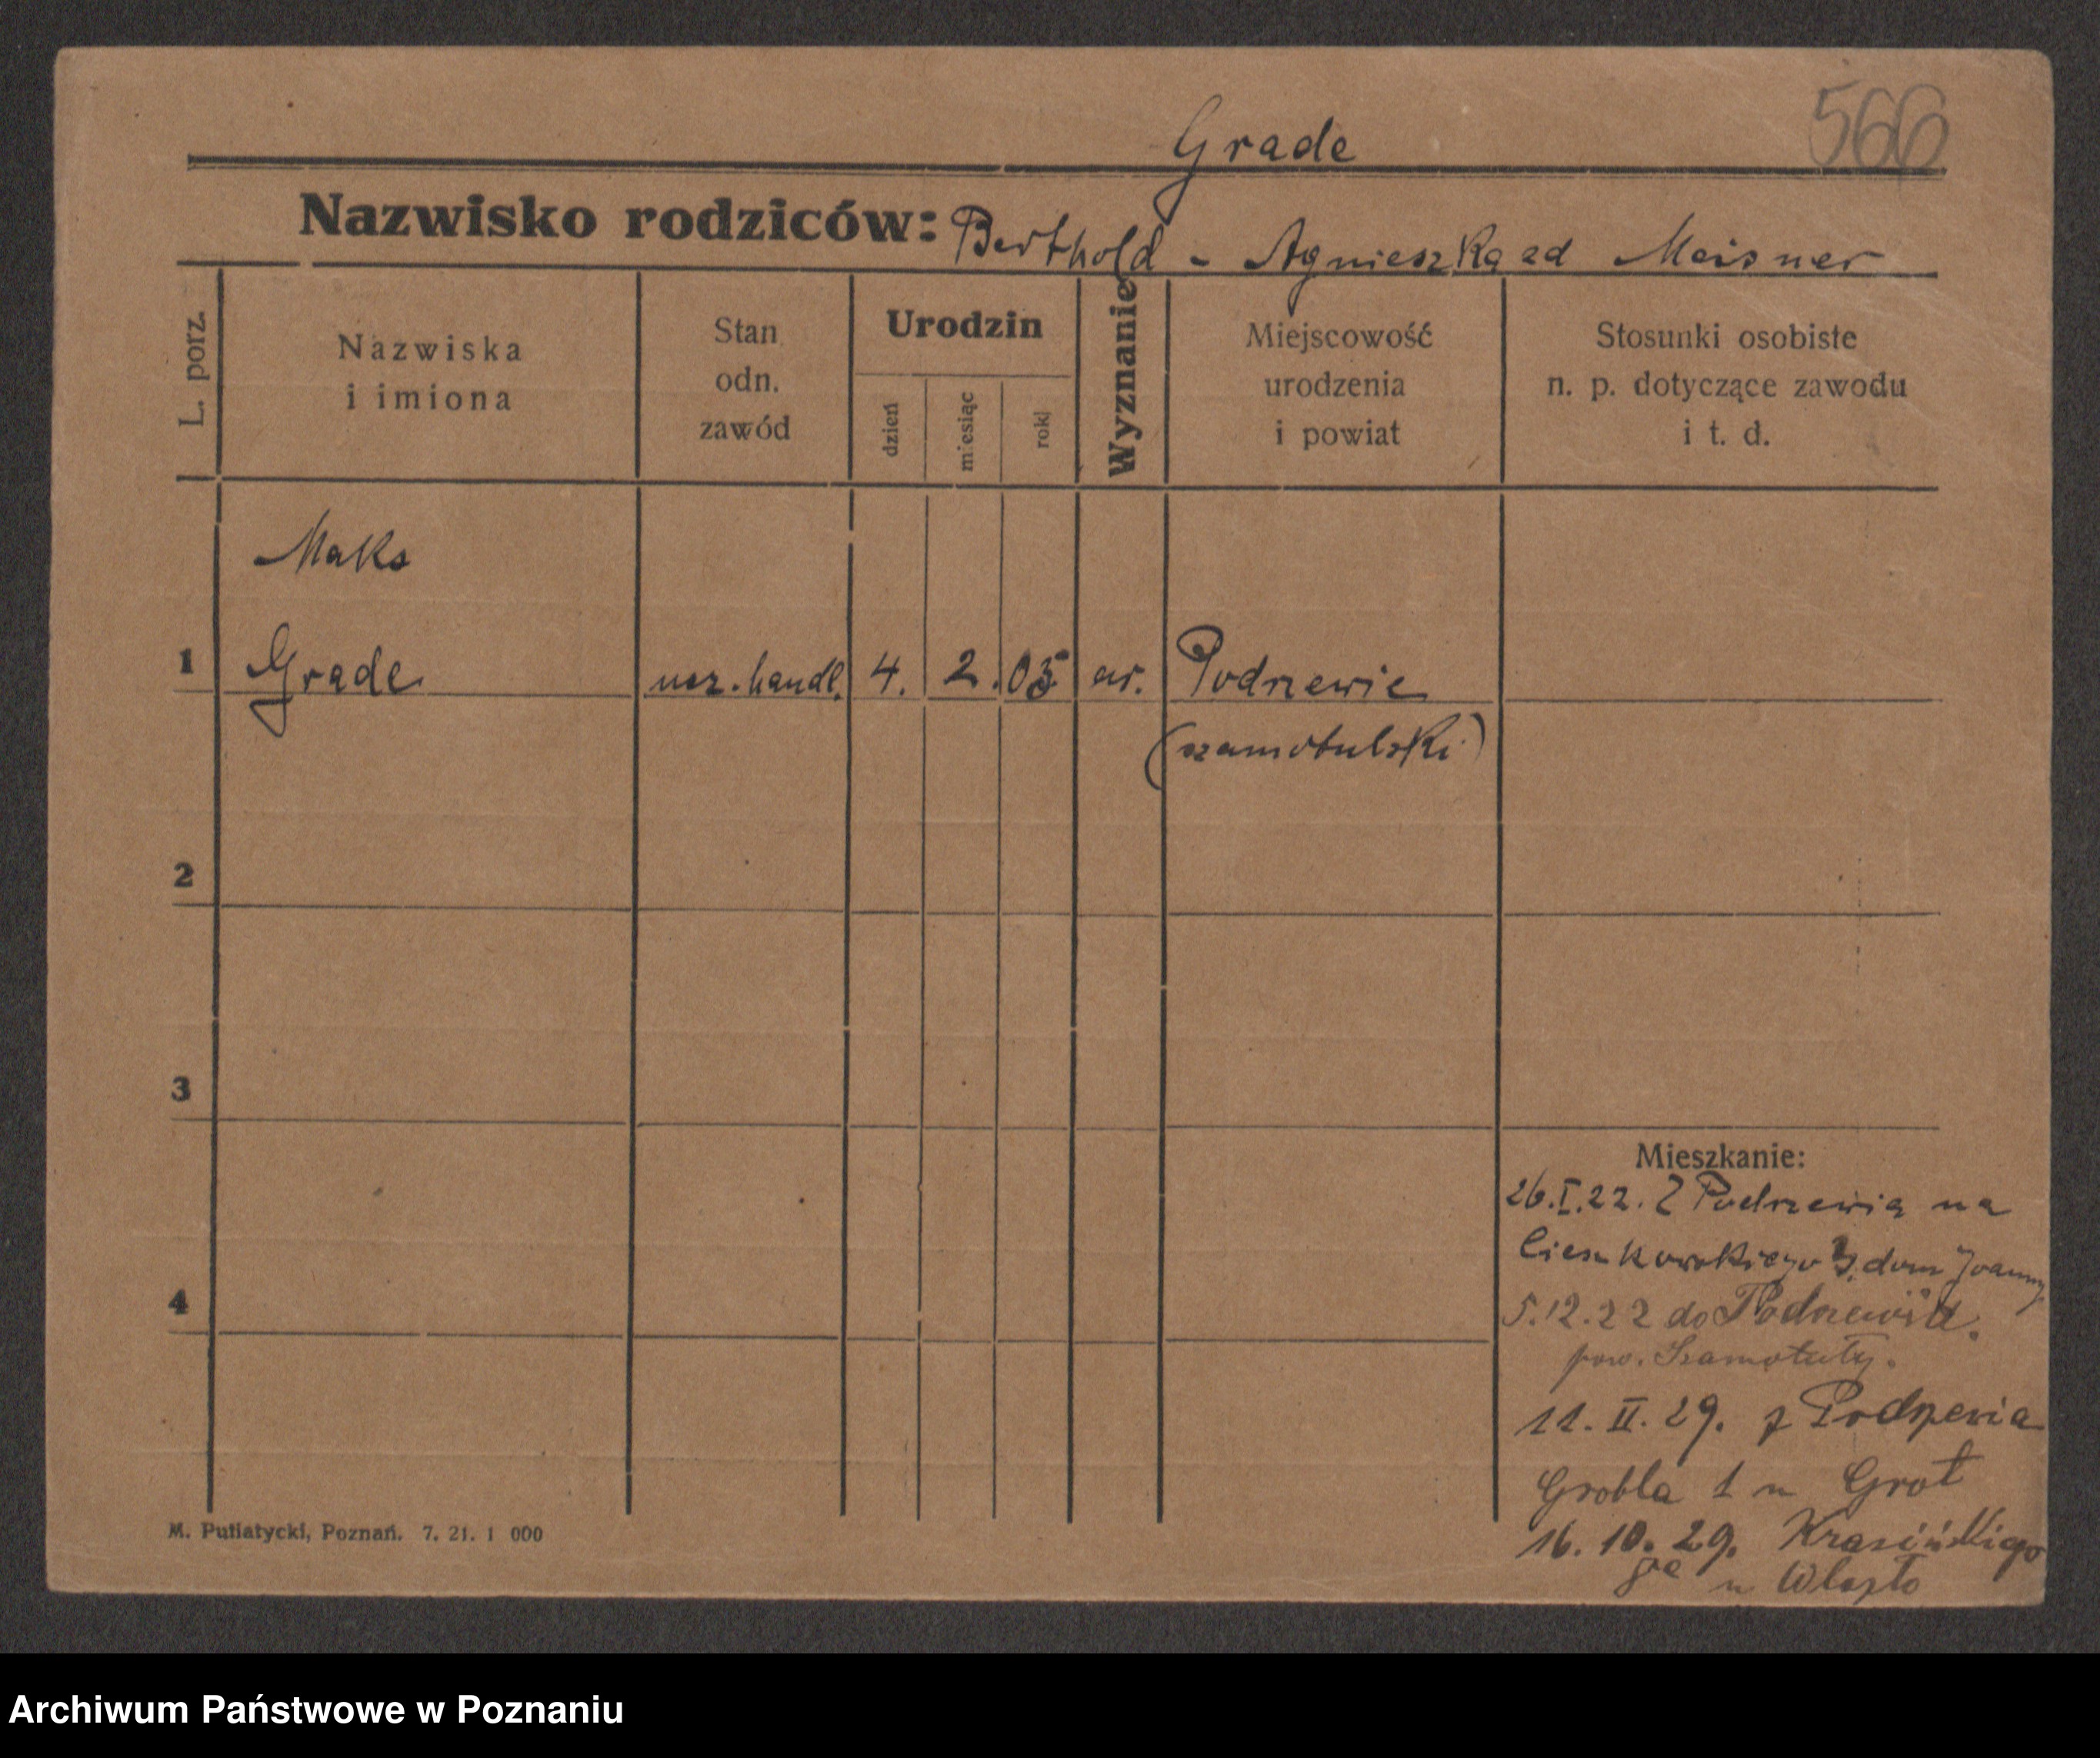 566
Grade
Nazwisko rodziców: Berthold - Agnieszka zd Meisner
L. porz.
Nazwiska
i imiona
Stan
odn.
zawód
Urodzin
dzień
miesiąc
rok
Wyznanie
Miejscowość
urodzenia
i powiat
Stosunki osobiste
n. p. dotyczące zawodu
i t. d.
Maks
1 Grade ucz. handl. 4. 2. 05 ew. Podrzewie
(szamotulski)
2
3
Mieszkanie:
26.I.22. Z Podrzewia na
Cieszkowskiego 3. dom Joanny
4
5.12.22 do Podrzewia.
pow. Szamotuły.
11. II. 29. z Podrzewia
Grobla 1 u Grot
16. 10. 29. Krasińskiego
u Wlazło
M. Putiatycki, Poznań. 7. 21. 1 000
Archiwum Państwowe w Poznaniu